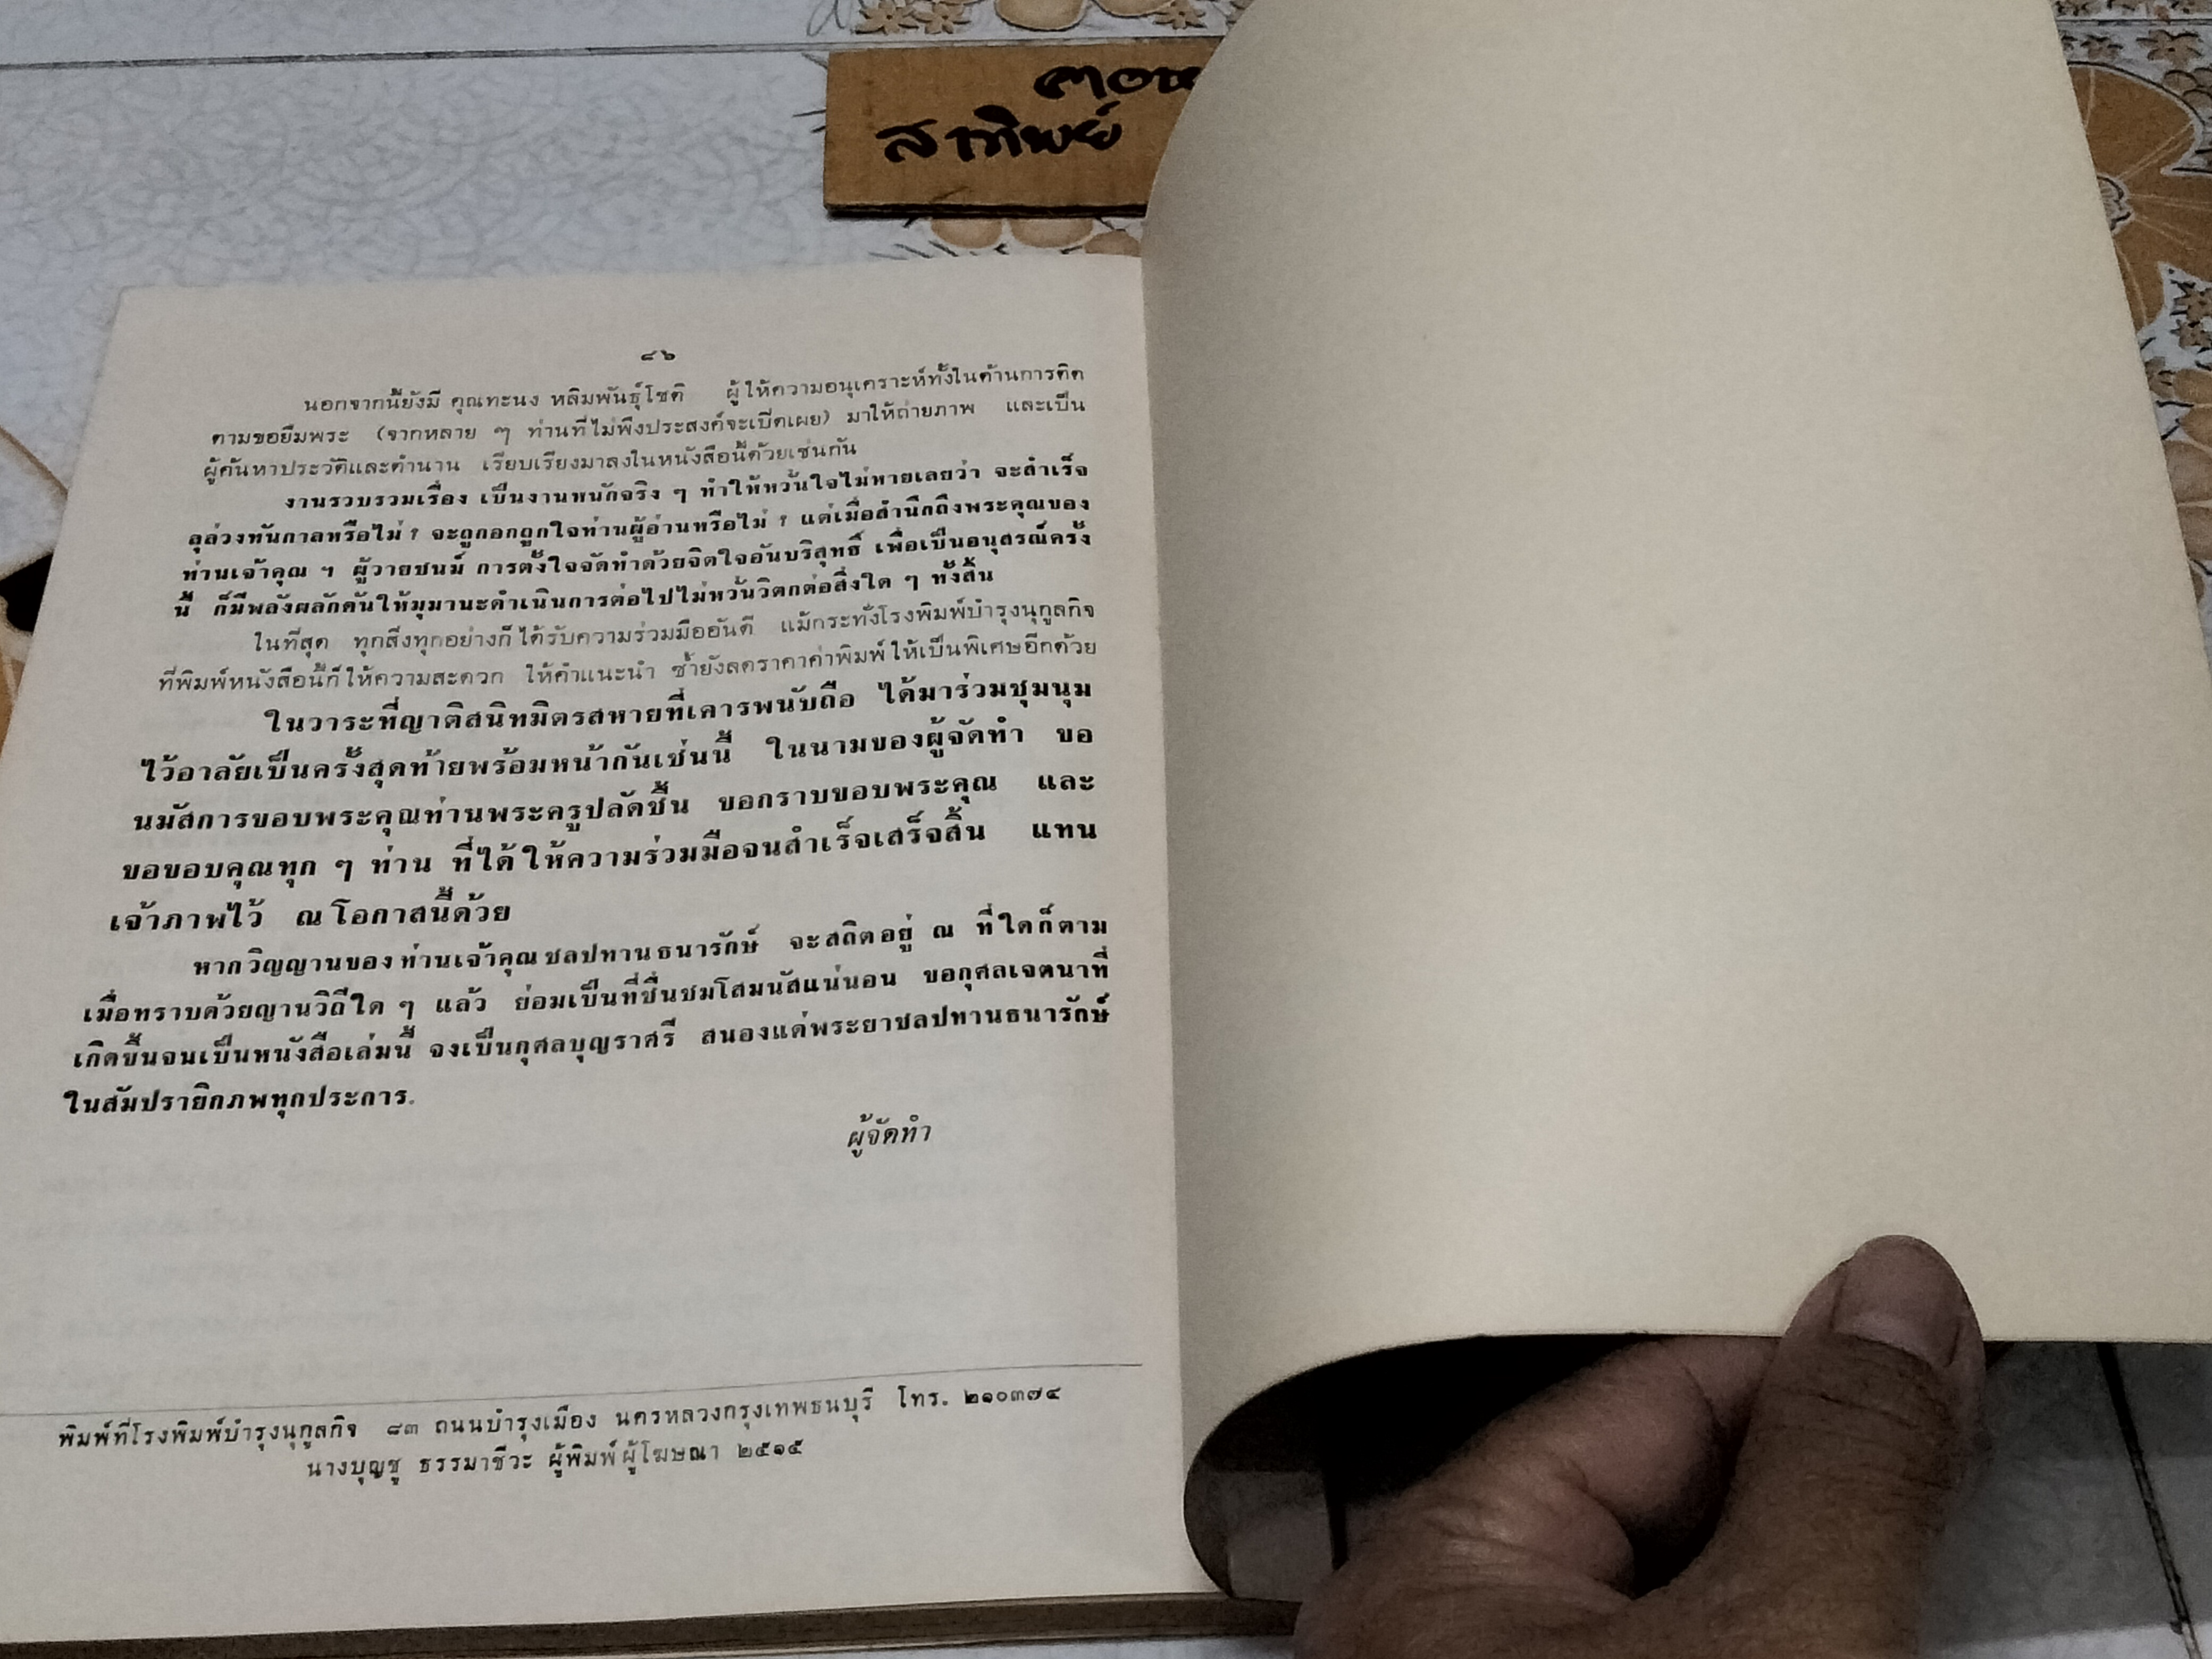 สาทิพย์
๘๖
นอกจากนี้ยังมี คุณทะนง หลิมพันธุ์โชติ ผู้ให้ความอนุเคราะห์ทั้งในด้านการติด
ตามขอยืมพระ (จากหลาย ๆ ท่านที่ไม่พึงประสงค์จะเปิดเผย) มาให้ถ่ายภาพ และเป็น
ผู้ค้นหาประวัติและตำนาน เรียบเรียงมาลงในหนังสือนี้ด้วยเช่นกัน
งานรวบรวมเรื่อง เป็นงานหนักจริง ๆ ทำให้หวั่นใจไม่หายเลยว่า จะสำเร็จ
ลุล่วงทันกาลหรือไม่ ? จะถูกอกถูกใจท่านผู้อ่านหรือไม่ ? แต่เมื่อสำนึกถึงพระคุณของ
ท่านเจ้าคุณ ฯ ผู้วายชนม์ การตั้งใจจัดทำด้วยจิตใจอันบริสุทธิ์ เพื่อเป็นอนุสรณ์ครั้ง
นี้ ก็มีพลังผลักดันให้มุมานะดำเนินการต่อไปไม่หวั่นวิตกต่อสิ่งใด ๆ ทั้งสิ้น
ในที่สุด ทุกสิ่งทุกอย่างก็ได้รับความร่วมมืออันดี แม้กระทั่งโรงพิมพ์บำรุงนุกูลกิจ
ที่พิมพ์หนังสือนี้ก็ให้ความสะดวก ให้คำแนะนำ ซ้ำยังลดราคาค่าพิมพ์ให้เป็นพิเศษอีกด้วย
ในวาระที่ญาติสนิทมิตรสหายที่เคารพนับถือ ได้มาร่วมชุมนุม
ไว้อาลัยเป็นครั้งสุดท้ายพร้อมหน้ากันเช่นนี้ ในนามของผู้จัดทำ ขอ
นมัสการขอบพระคุณท่านพระครูปลัดชั้น ขอกราบขอบพระคุณ และ
ขอขอบคุณทุก ๆ ท่าน ที่ได้ให้ความร่วมมือจนสำเร็จเสร็จสิ้น แทน
เจ้าภาพไว้ ณ โอกาสนี้ด้วย
หากวิญญานของท่านเจ้าคุณชลปทานธนารักษ์ จะสถิตอยู่ ณ ที่ใดก็ตาม
เมื่อทราบด้วยญานวิถีใด ๆ แล้ว ย่อมเป็นที่ชื่นชมโสมนัสแน่นอน ขอกุศลเจตนาที่
เกิดขึ้นจนเป็นหนังสือเล่มนี้ จงเป็นกุศลบุญราศรี สนองแด่พระยาชลปทานธนารักษ์
ในสัมปรายิกภพทุกประการ.
ผู้จัดทำ
พิมพ์ที่โรงพิมพ์บำรุงนุกูลกิจ ๘๓ ถนนบำรุงเมือง นครหลวงกรุงเทพธนบุรี โทร. ๒๑๐๓๗๔
นางบุญชู ธรรมาชีวะ ผู้พิมพ์ผู้โฆษณา ๒๕๑๕